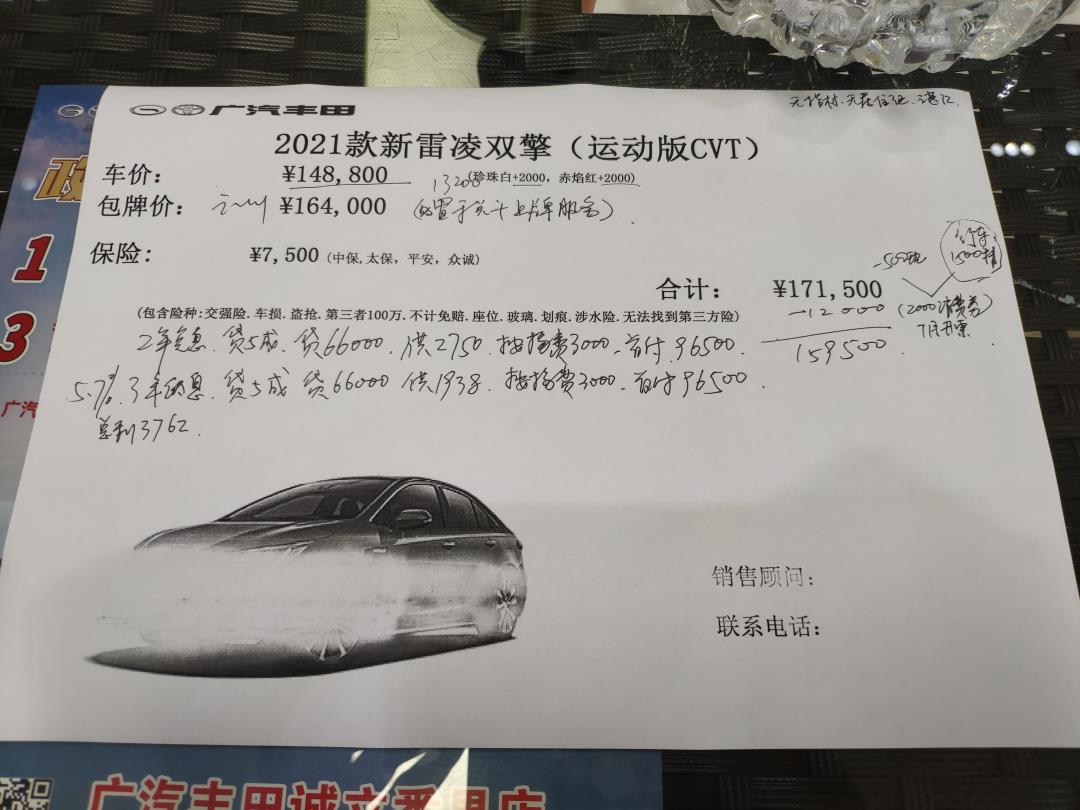 广汽丰田
无指标.无居住证.湛江.
2021款新雷凌双擎（运动版CVT）
车价： ¥148,800 (珍珠白+2000，赤焰红+2000)
包牌价： ¥164,000
保险： ¥7,500 (中保,太保，平安，众诚)
1500精
合计： ¥171,500
(2000消费券)
7月开票
-12000
159500
(包含险种:交强险.车损.盗抢.第三者100万.不计免赔.座位.玻璃.划痕.涉水险.无法找到第三方险)
2年免息.贷5成.贷66000.供2750.按揭费3000.首付96500.
5.7% 3年 息.贷5成 贷66000 供1938.按揭费3000.首付96500.
总利3762.
销售顾问：
联系电话：
政
1
3
广汽
广汽丰田诚立番禺店